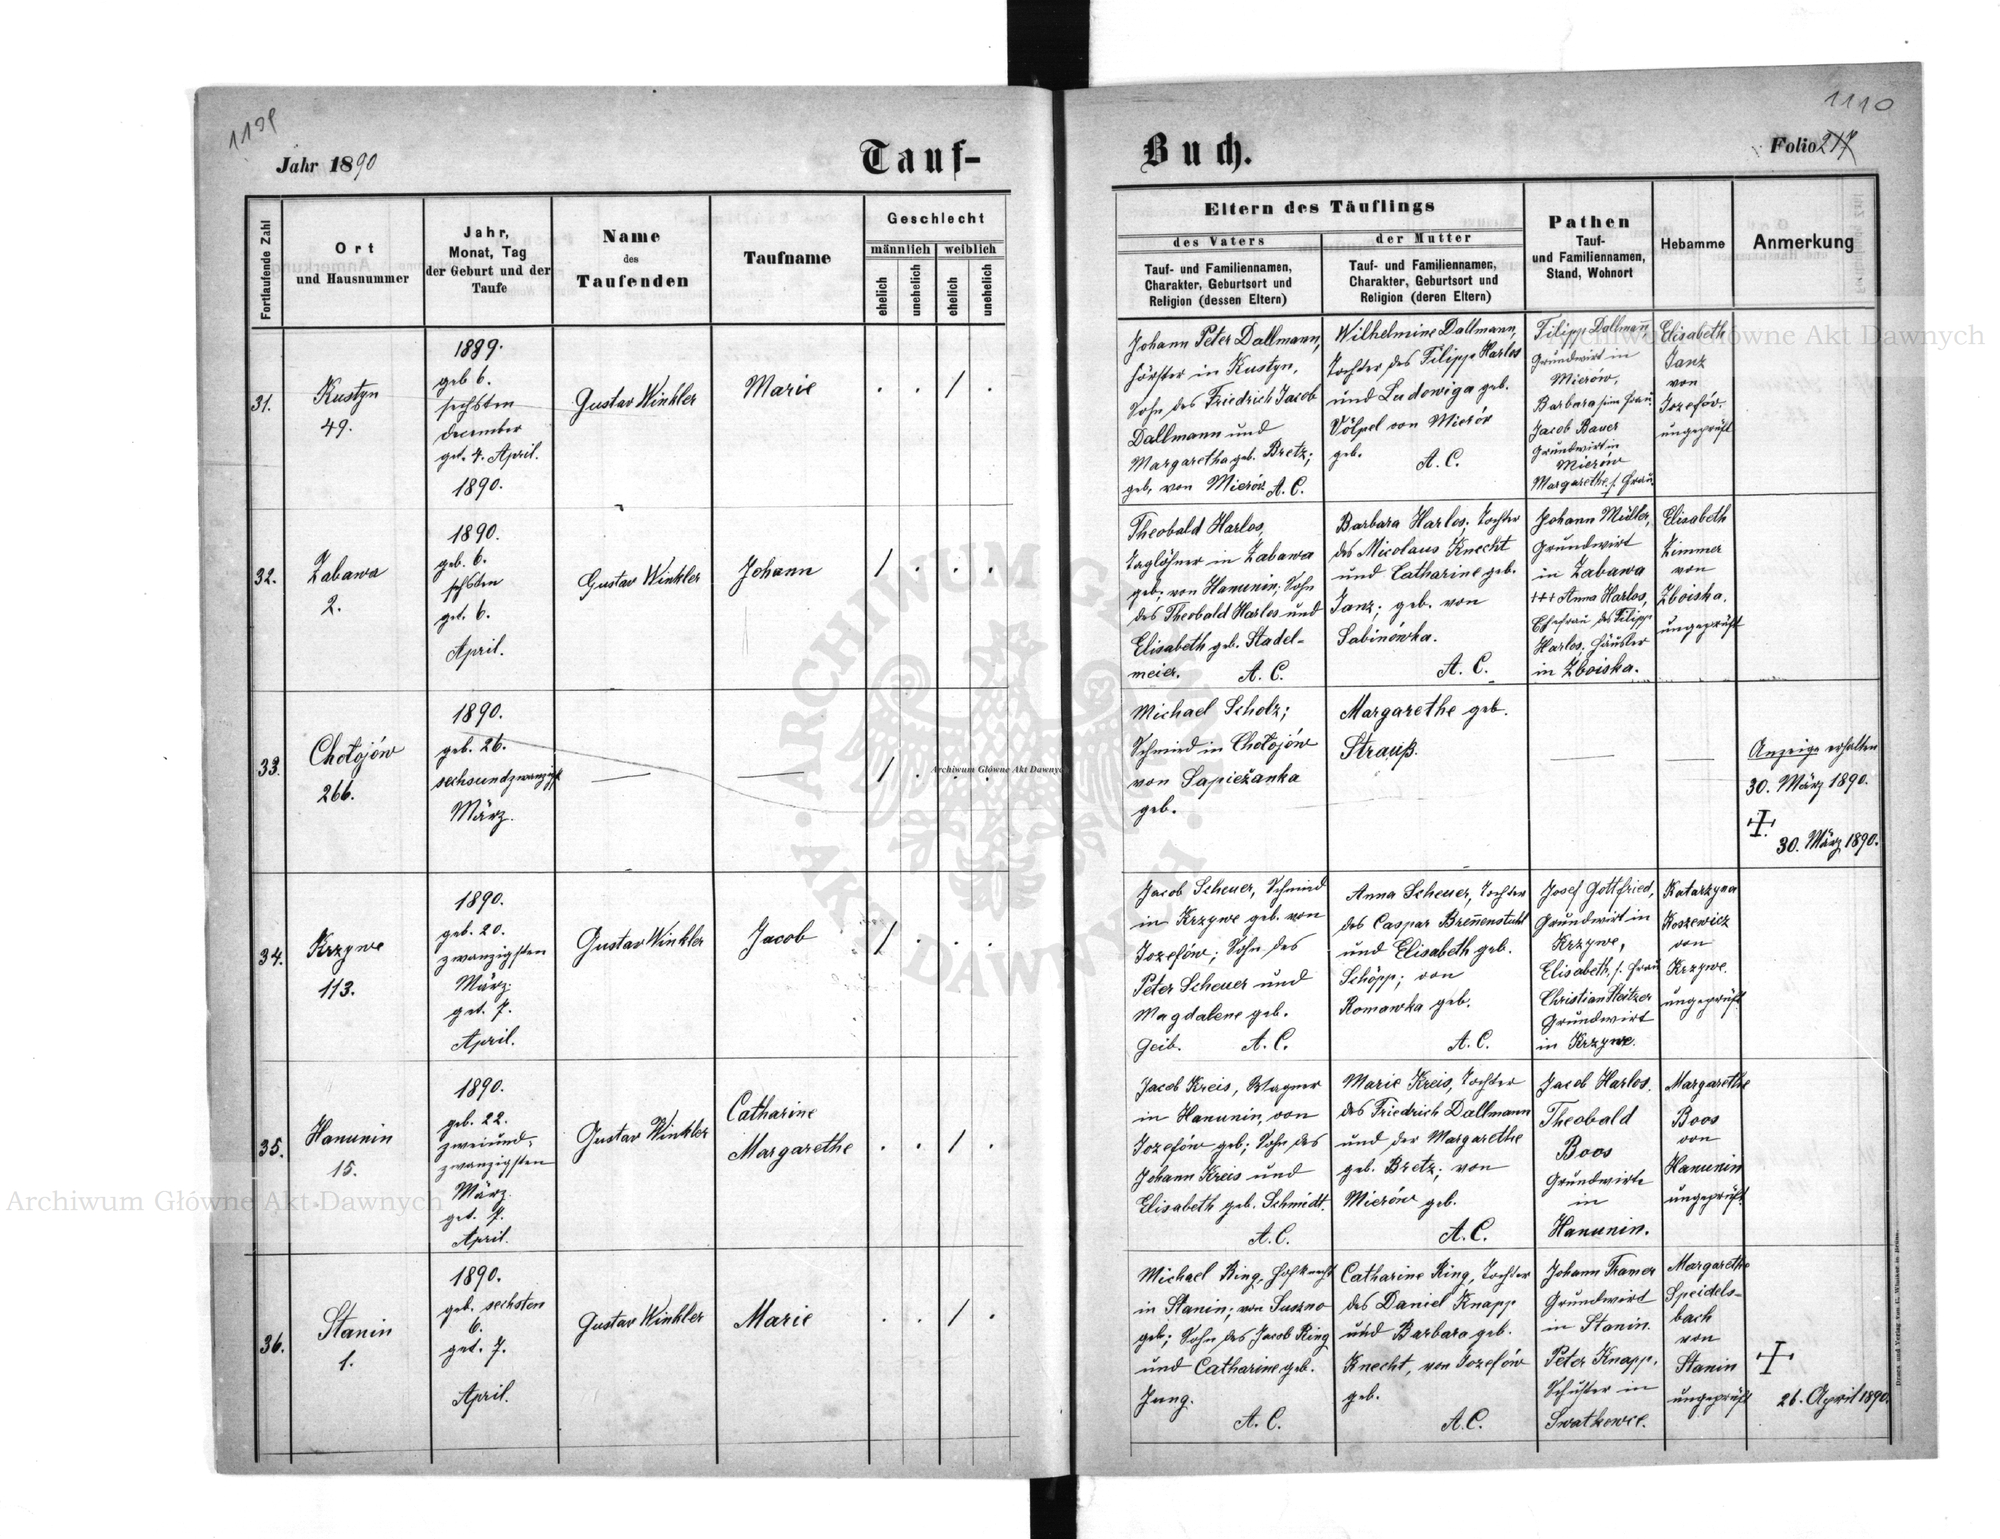 1109
Jahr 1890
Tauf-
Fortlaufende Zahl
Ort
und Hausnummer
Jahr,
Monat, Tag
der Geburt und der
Taufe
Name
des
Taufenden
Taufname
Geschlecht
männlich
weiblich
ehelich
unehelich
ehelich
unehelich
31.
Kustyn
49.
1889.
geb 6.
sechsten
december
get. 7. April.
1890.
Gustav Winkler
Marie
. . / .
32.
Zabawa
2.
1890.
geb. 6.
sechsten
get. 6.
April.
Gustav Winkler
Johann
/ . . .
33.
Chołojów
266.
1890.
geb. 26.
sechsundzwanzigst
März.
—
—
/ . . .
34.
Krzywe
113.
1890.
geb. 20.
zwanzigsten
März.
get. 7.
April.
Gustav Winkler
Jacob
/ . . .
35.
Hanunin
15.
1890.
geb. 22.
zweiund-
zwanzigsten
März.
get. 7.
April.
Gustav Winkler
Catharine
Margarethe
. . / .
36.
Stanin
1.
1890.
geb. sechsten
6.
get. 7.
April.
Gustav Winkler
Marie
. . / .
1110
Buch.
Folio 217
Eltern des Täuflings
des Vaters
der Mutter
Tauf- und Familiennamen,
Charakter, Geburtsort und
Religion (dessen Eltern)
Tauf- und Familiennamen,
Charakter, Geburtsort und
Religion (deren Eltern)
Pathen
Tauf-
und Familiennamen,
Stand, Wohnort
Hebamme
Anmerkung
Johann Peter Dallmann,
Förster in Kustyn,
Sohn des Friedrich Jacob
Dallmann und
Margaretha geb. Bretz;
geb. von Mierów A. C.
Wilhelmine Dallmann,
Tochter des Filipp Harlos
und Ludowiga geb.
Völpel von Mierów
geb.
A. C.
Filipp Dallmann
Grundwirt in
Mierów,
Barbara seine Frau.
Jacob Bauer
Grundwirt in
Mierów
Margarethe s. Frau
Elisabeth
Janz
von
Jozefów.
ungeprüft
Theobald Harlos,
Taglöhner in Zabawa
geb. von Hanunin; Sohn
des Theobald Harlos und
Elisabeth geb. Stadel-
meier. A. C.
Barbara Harlos, Tochter
des Nicolaus Knecht
und Catharine geb.
Janz; geb. von
Sabinówka.
A. C.
Johann Müller,
Grundwirt
in Zabawa
+++ Anna Harlos,
Ehefrau des Filipp
Harlos, Häusler
in Zboiska.
Elisabeth
Zimmer
von
Zboiska.
ungeprüft
Michael Scholz;
Schmied in Chołojów
von Sapieżanka
geb.
Margarethe geb.
Strauß.
—
—
Anzeige erhalten
30. März 1890.
30. März 1890.
Jacob Scheuer, Schmied
in Krzywe geb. von
Jozefów; Sohn des
Peter Scheuer und
Magdalene geb.
Geib. A. C.
Anna Scheuer, Tochter
des Caspar Brennenstuhl
und Elisabeth geb.
Schöpp; von
Romawka geb.
A. C.
Josef Gottfried,
Grundwirt in
Krzywe,
Elisabeth, s. Frau
Christian Steitzer
Grundwirt
in Krzywe.
Katarzyna
Koszewicz
von
Krzywe.
ungeprüft
Jacob Kreis, Wagner
in Hanunin, von
Jozefów geb; Sohn des
Johann Kreis und
Elisabeth geb. Schmidt.
A. C.
Marie Kreis, Tochter
des Friedrich Dallmann
und der Margarethe
geb. Bretz; von
Mierów geb.
A. C.
Jacob Harlos.
Theobald
Boos
Grundwirte
in
Hanunin.
Margarethe
Boos
von
Hanunin
ungeprüft
Michael Ring, Hofknecht
in Stanin; von Suszno
geb; Sohn des Jacob Ring
und Catharine geb.
Jung.
A. C.
Catharine Ring, Tochter
des Daniel Knapp
und Barbara geb.
Knecht, von Jozefów
geb.
A. C.
Johann Kramer
Grundwirt
in Stanin.
Peter Knapp,
Schuster in
Margarethe
Speidels-
bach
von
Stanin
ungeprüft
26. April 1890.
Druck und Verlag von C. Winiker in Brünn.
Archiwum Główne Akt Dawnych
Archiwum Główne Akt Dawnych
Archiwum Główne Akt Dawnych
ARCHIWUM GŁÓWNE AKT DAWNYCH